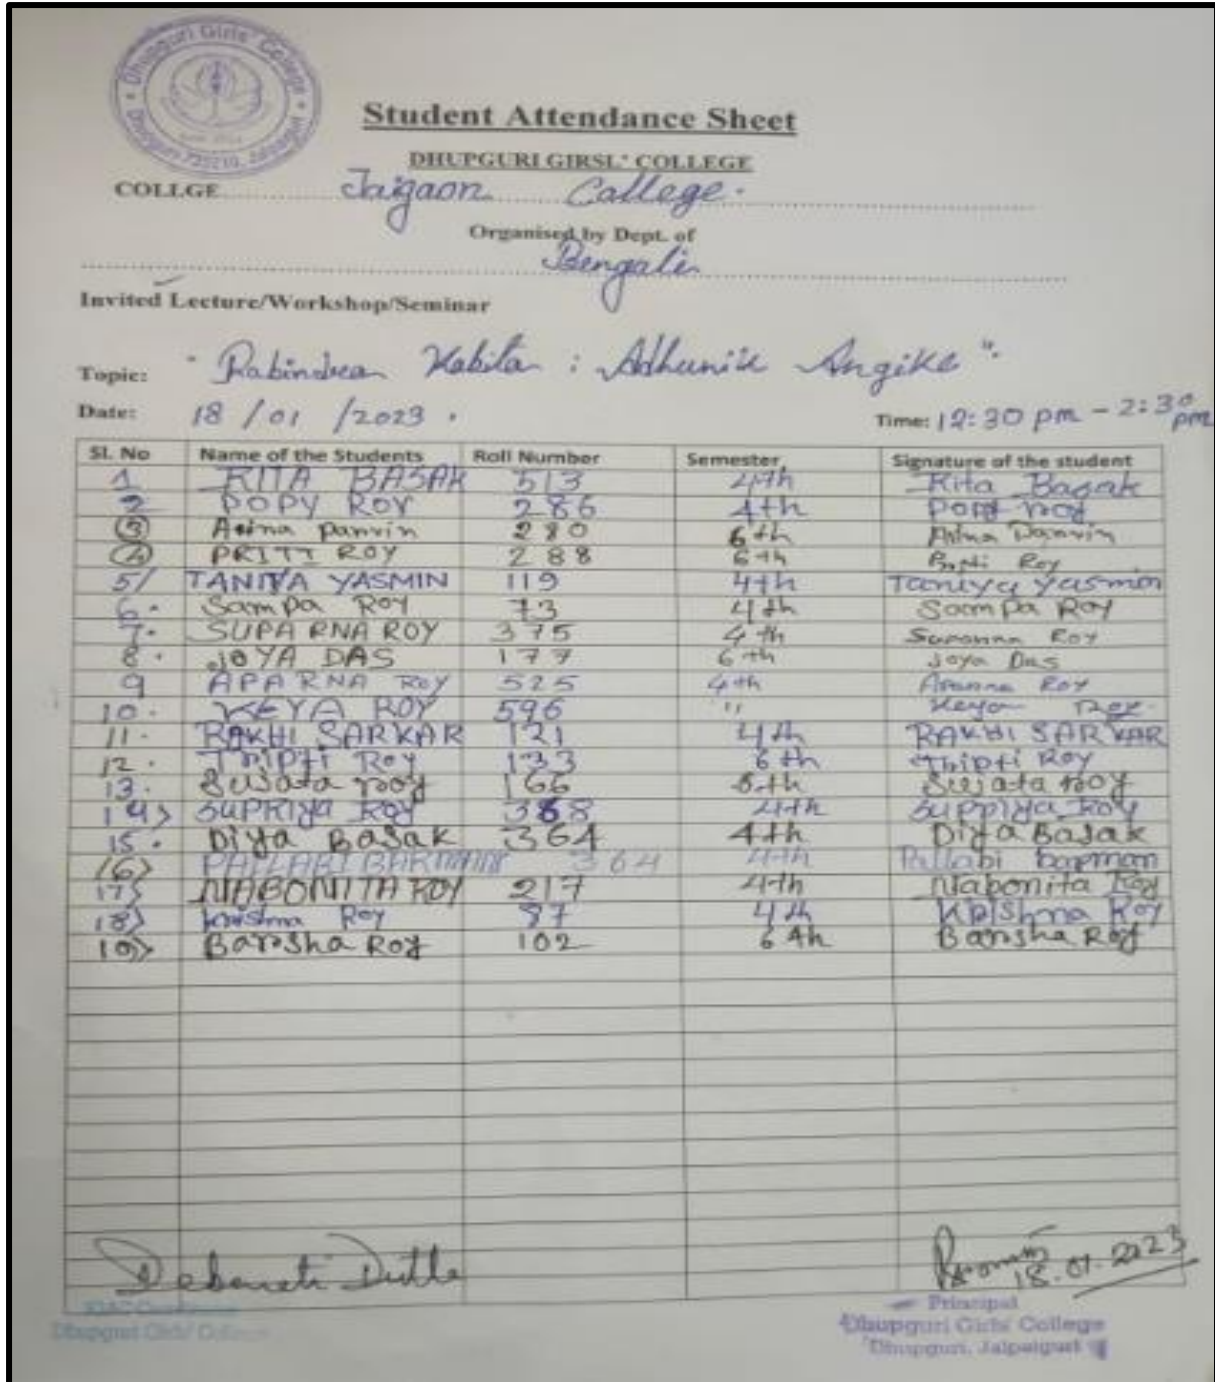 Dhupguri Girls' College
Dhupguri 735210, Jalpaiguri
Student Attendance Sheet
DHUPGURI GIRSL' COLLEGE
COLLGE Jaigaon College.
Organised by Dept. of
Bengali
Invited Lecture/Workshop/Seminar
Topic: "Rabindra Kabita : Adhunik Angike".
Date: 18/01/2023. Time: 12:30 pm - 2:30 pm
Sl. No Name of the Students Roll Number Semester Signature of the student
1 RITA BASAK 513 4th Rita Basak
2 POPY ROY 286 4th Popy roy
3 Asina Parvin 280 6th Asina Parvin
4 PRITI ROY 288 6th Priti Roy
5/ TANIYA YASMIN 119 4th Taniya Yasmin
6. Sampa Roy 73 4th Sampa Roy
7. SUPARNA ROY 375 4th Suparna Roy
8. JOYA DAS 177 6th Joya Das
9 APARNA Roy 525 4th Aparna Roy
10. KEYA ROY 596 " Keya Roy.
11. RAKHI SARKAR 121 4th RAKHI SARKAR
12. Tripti Roy 133 6th Tripti Roy
13. Sujata roy 166 6th Sujata roy
14> SUPRIYA ROY 368 4th Supriya Roy
15. Diya Basak 364 4th Diya Basak
16> PALLABI BARMAN 364 4th Pallabi barman
17> NABONITA ROY 217 4th Nabonita Roy
18> Krishna Roy 87 4th Krishna Roy
19> Barsha Roy 102 6th Barsha Roy
Debarati Dutta
18.01.2023
Principal
Dhupguri Girls' College
Dhupguri Girls' College
Dhupguri, Jalpaiguri